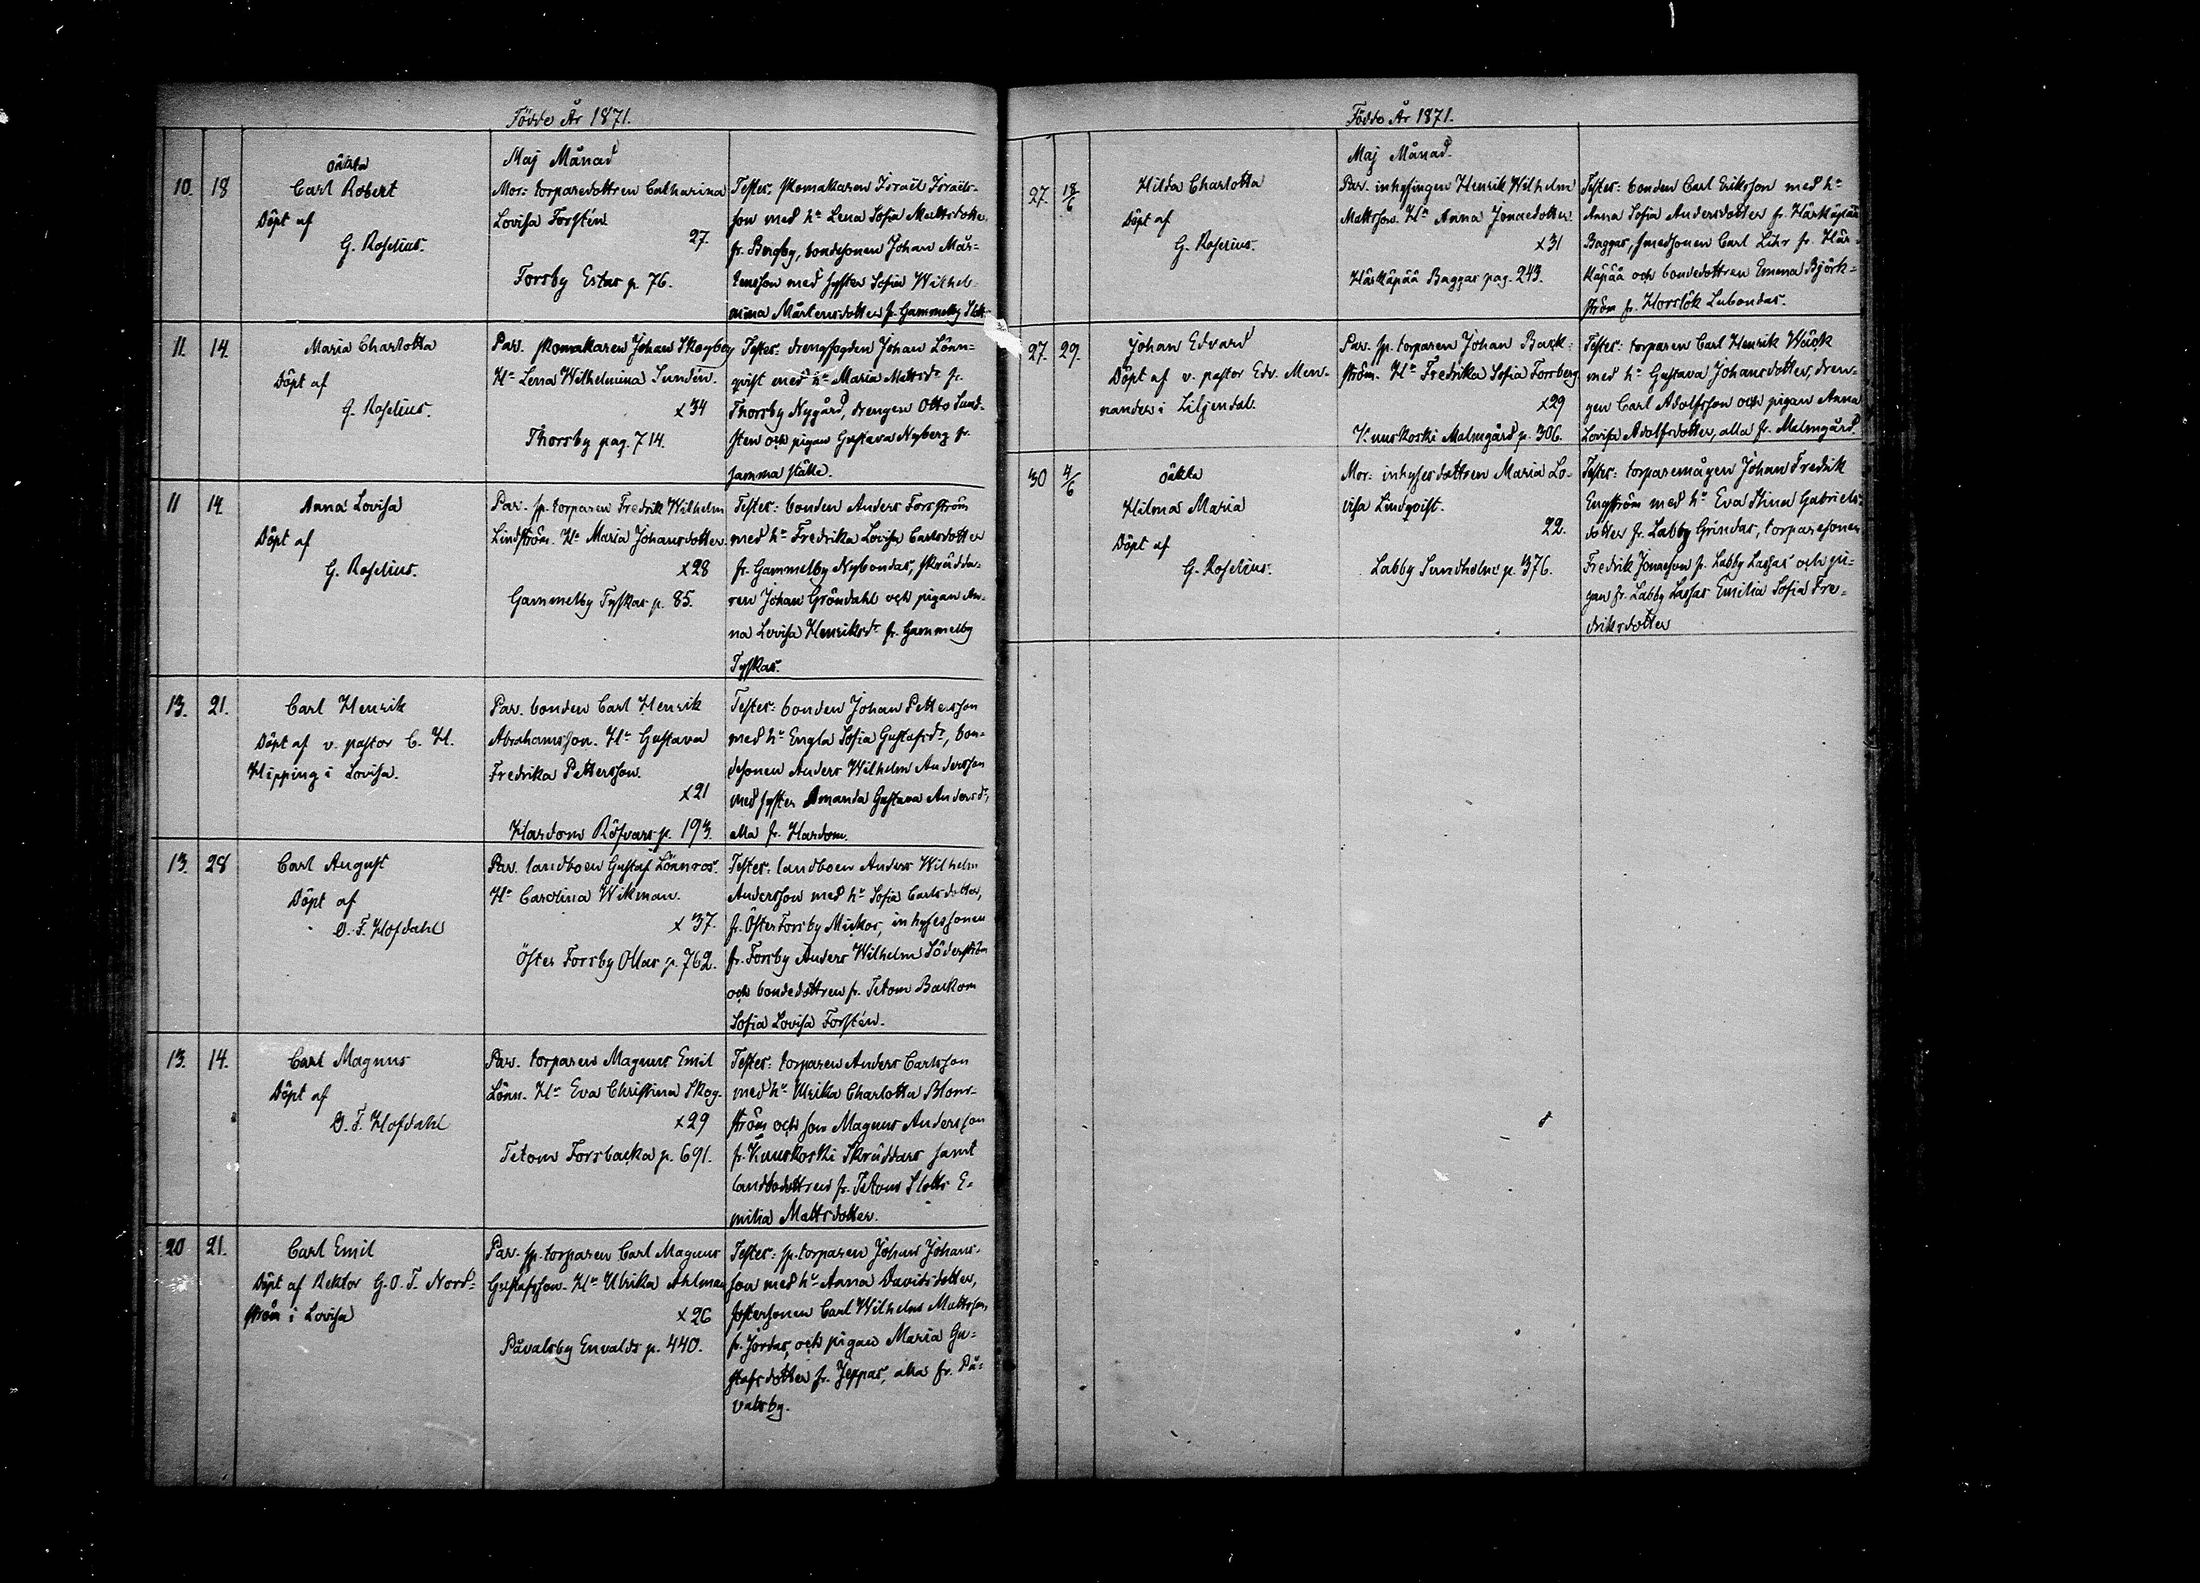 Födde År 1871.
Maj Månad
10. 18
oäkta
Carl Robert
Döpt af
G. Roselius.
Mor: torparedottren Catharina
Lovisa Forstén
27.
Forsby Estas p. 76.
Testes: skomakaren Israël Israels-
son med hu Lena Sofia Mattsdotter
fr. Bergby, bondesonen Johan Mår-
tensson med syster Sofia Wilhel-
mina Mårtensdotter fr. Gammelby
11. 14.
Maria Charlotta
Döpt af
G. Roselius.
Par. skomakaren Johan Skogberg
Hu Lena Wilhelmina Sundén.
x34
Thorsby pag. 714.
Testes: drengfogden Johan Lönn-
qvist med hu Maria Mattsdr fr.
Thorsby Nygård, drengen Otto Sund-
sten och pigan Gustava Nyberg fr.
samma ställe.
11 14.
Anna Lovisa
Döpt af
G. Roselius.
Par. sp. torparen Fredrik Wilhelm
Lindström. Hu Maria Johansdotter.
x28
Gammelby Tyskas p. 85.
Testes: bonden Anders Forsström
med hu Fredrika Lovisa Carlsdotter
fr. Gammelby Nybondas, skrädda-
ren Johan Gröndahl och pigan An-
na Lovisa Henriksdr fr. Gammelby
Tyskas.
13. 21.
Carl Henrik
Döpt af v. pastor C. H.
Hipping i Lovisa.
Par. bonden Carl Henrik
Abrahamsson. Hu Gustava
Fredrika Pettersson.
x21
Hardom Röfvars p. 193.
Testes: bonden Johan Pettersson
med hu Engla Sofia Gustafsdr, bon-
desonen Anders Wilhelm Andersson
med syster Amanda Gustava Andersdr,
alla fr. Hardom.
13. 28
Carl August
Döpt af
O. F. Hofdahl
Par. landboen Gustaf Lönnros.
Hu Carolina Wikman.
x37.
Öster Forsby Ollas p. 762.
Testes: landboen Anders Wilhelm
Andersson med hu Sofia Carlsdotter,
fr. Öster Forsby Mickos, inhysessonen
fr. Forsby Anders Wilhelm Söderström
och bondedottren fr. Tetom Backom
Sofia Lovisa Forstén.
13. 14.
Carl Magnus
Döpt af
O. F. Hofdahl
Par. torparen Magnus Emil
Lönn. Hu Eva Christina Skog.
x29
Tetom Forsbacka p. 691.
Testes: torparen Anders Carlsson
med hu Ulrika Charlotta Blom-
ström och son Magnus Andersson
fr. Kuuskoski Skräddars samt
landbodottren fr. Tetom Slotts E-
milia Mattsdotter.
20 21.
Carl Emil
Döpt af Rektor G. O. F. Nord-
ström i Lovisa
Par. sp. torparen Carl Magnus
Gustafsson. Hu Ulrika Ahlman
x26
Påvalsby Envalds p. 440.
Testes: sp. torparen Johan Johans-
son med hu Anna Davidsdotter,
fostersonen Carl Wilhelm Mattsson,
fr. Jordas, och pigan Maria Gu-
stafsdotter fr. Jeppas, alla fr. På-
valsby.
Födde År 1871.
Maj Månad.
27. 18/6
Hilda Charlotta
Döpt af
G. Roselius.
Par. inhysingen Henrik Wilhelm
Mattsson. Hu Anna Jonaedotter
x31
Härkäpää Baggas pag. 243.
Testes: bonden Carl Eriksson med hu
Anna Sofia Andersdotter fr. Härkäpää
Baggas, smedsonen Carl Lihr fr. Här-
käpää och bondedottren Emma Björk-
ström fr. Horslök Lubondas.
27. 29.
Johan Edvard
Döpt af v. pastor Edv. Men-
nander i Liljendal.
Par. sp. torparen Johan Back-
ström. Hu Fredrika Sofia Forsberg.
x29
Kuuskoski Malmgård p. 306.
Testes: torparen Carl Henrik Wäck
med hu Gustava Johansdotter, dren-
gen Carl Adolfsson och pigan Anna
Lovisa Adolfsdotter, alla fr. Malmgård.
30 4/6
oäkta
Hilma Maria
Döpt af
G. Roselius.
Mor: inhysesdottren Maria Lo-
visa Lindqvist.
22.
Labby Sundholm p. 376.
Testes: torparemågen Johan Fredrik
Engström med hu Eva Stina Gabriels-
dotter fr. Labby Grindas, torparesonen
Fredrik Jonaeson fr. Labby Lassas och pi-
gan fr. Labby Lassas Emilia Sofia Fre-
driksdotter